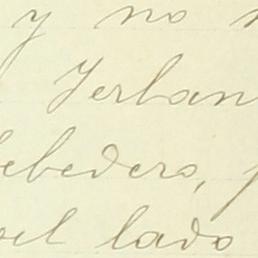 y no
Yerban
bebedero,
el lado